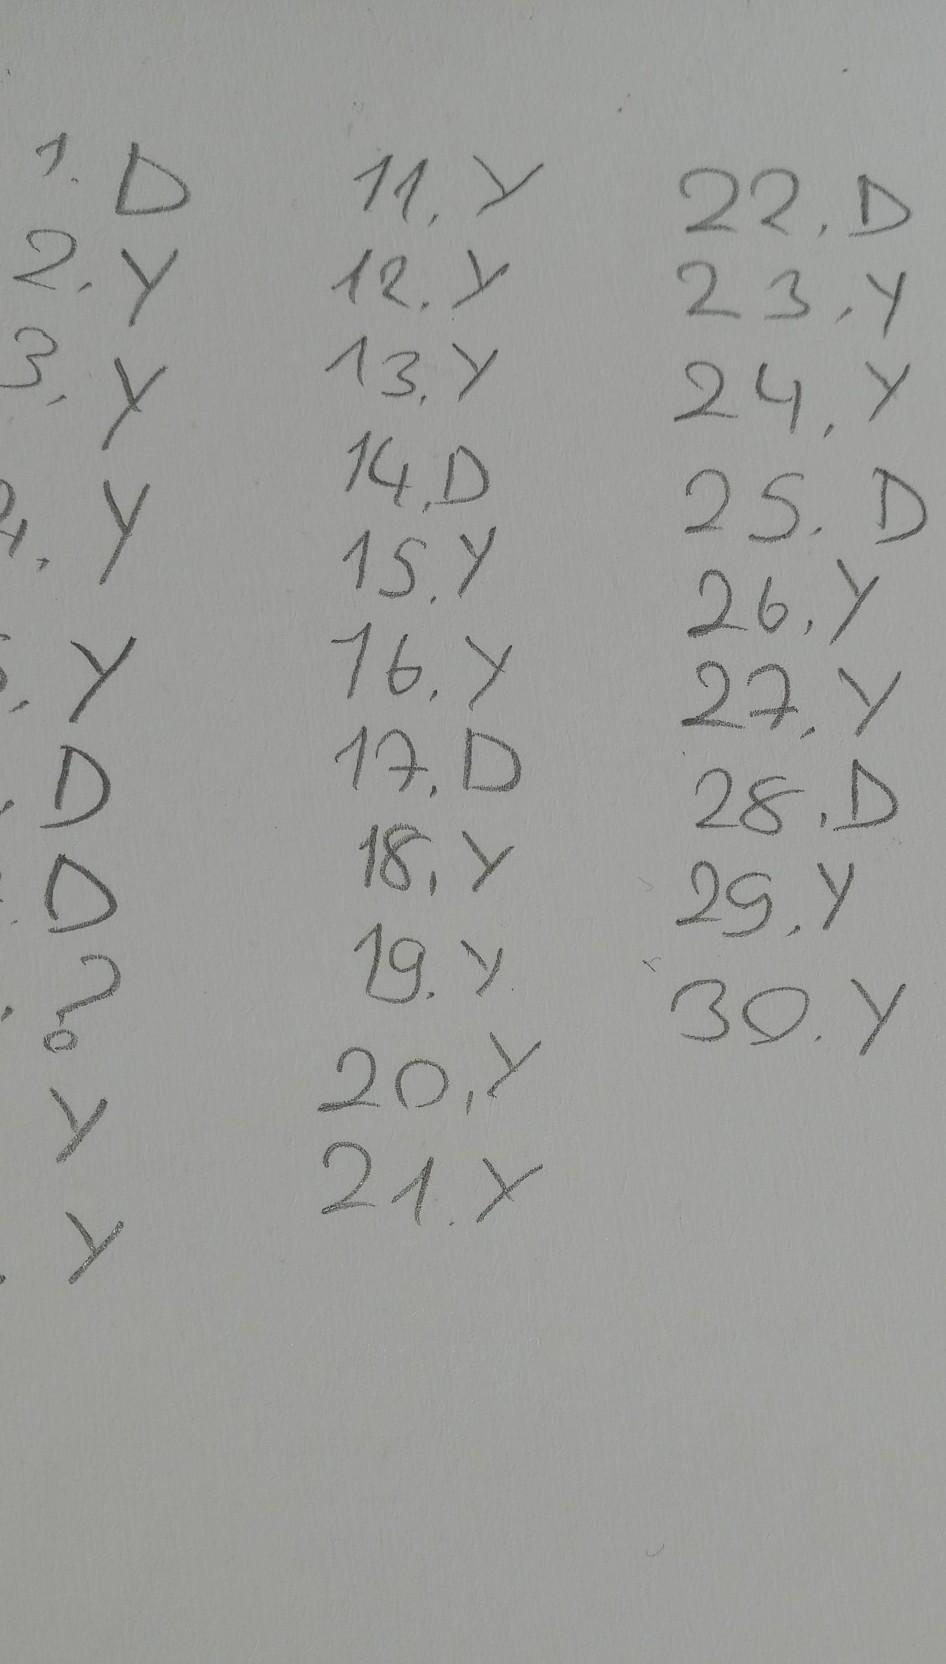 1. D
2. Y
3. Y
4. Y
5. Y
. D
. D
. ?
Y
. Y
11. Y
12. Y
13. Y
14. D
15. Y
16. Y
17. D
18. Y
19. Y
20. Y
21. Y
22. D
23. Y
24. Y
25. D
26. Y
27. Y
28. D
29. Y
30. Y